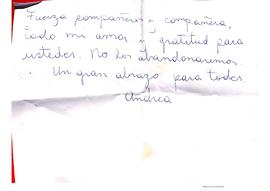 Fuerza compañeros y compañera,
todo mi amor y gratitud para
ustedes. No los abandonaremos.
Un gran abrazo para todes
Andrea